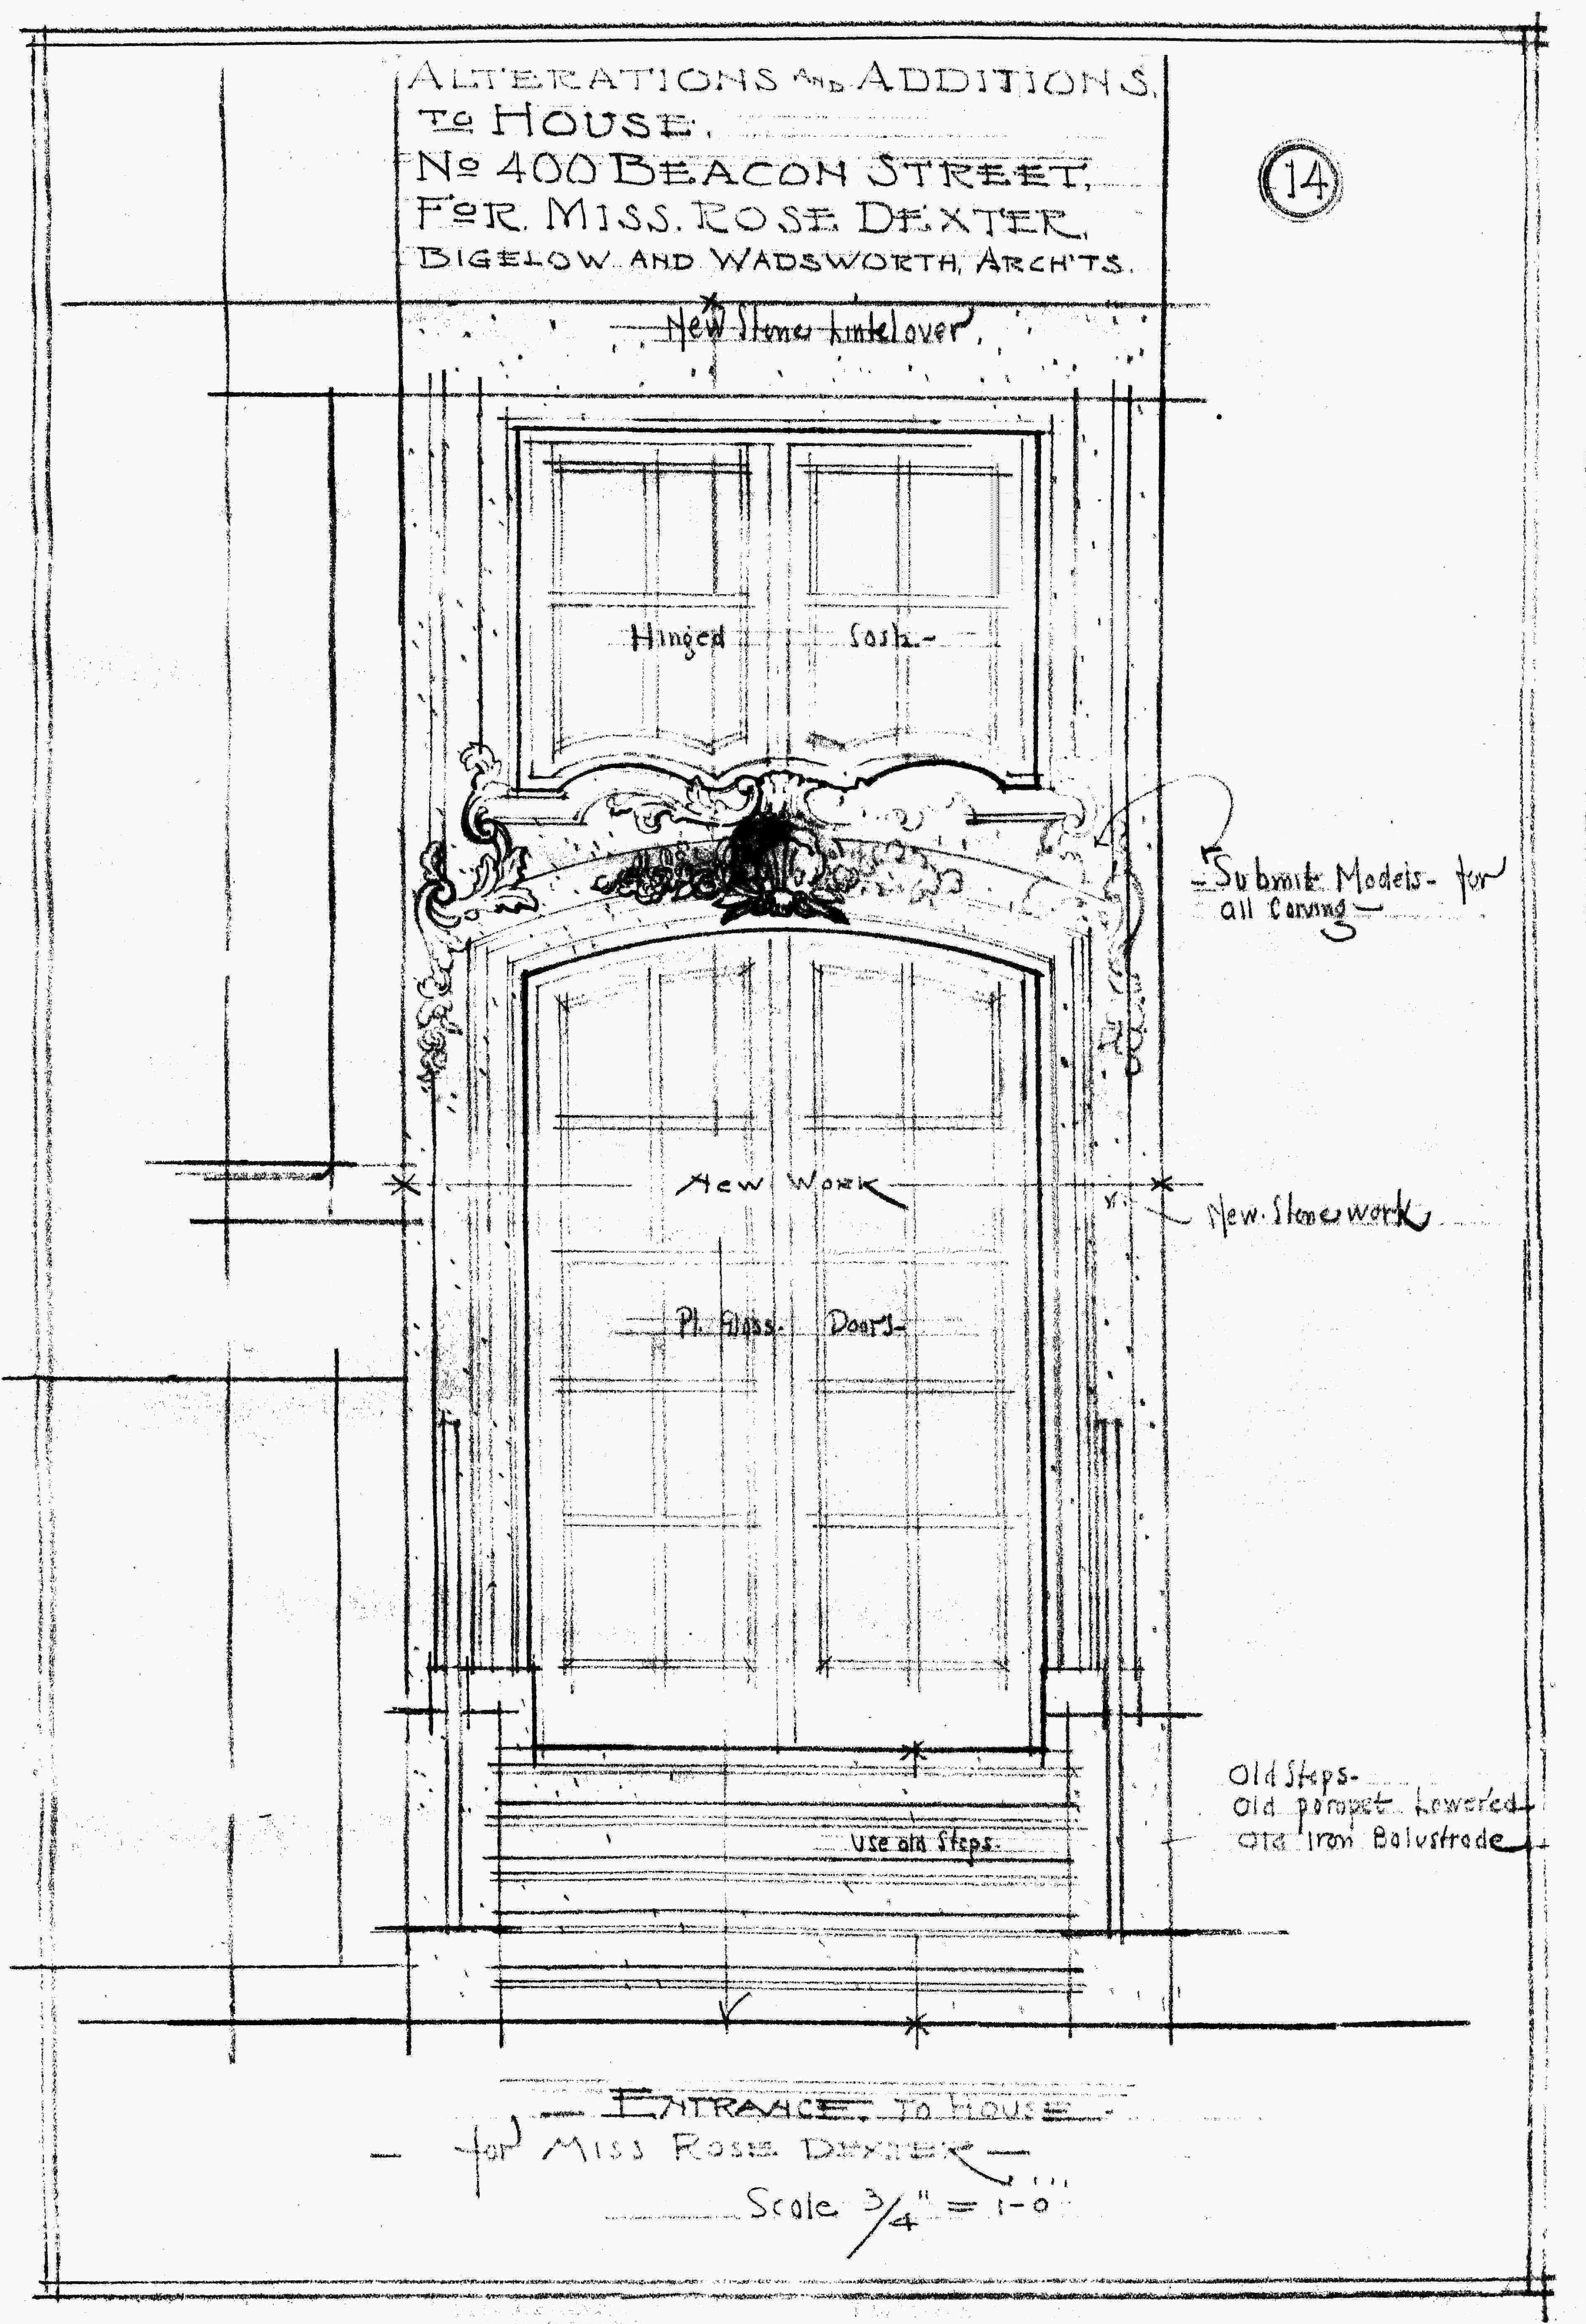 ALTERATIONS AND ADDITIONS.
TO HOUSE.
No 400 BEACON STREET.
FOR. MISS. ROSE DEXTER.
BIGELOW AND WADSWORTH, ARCH'TS.
14
New Stone Lintel over.
Hinged Sash-
- Submit Models- for
all Carving-
New Work
New. Stone work
Pl. Glass. Doors-
Old Steps-
Old parapet Lowered
Old Iron Balustrade
Use old Steps.
- ENTRANCE. TO HOUSE -
- for MISS ROSE DEXTER -
Scale 3/4" = 1-0"